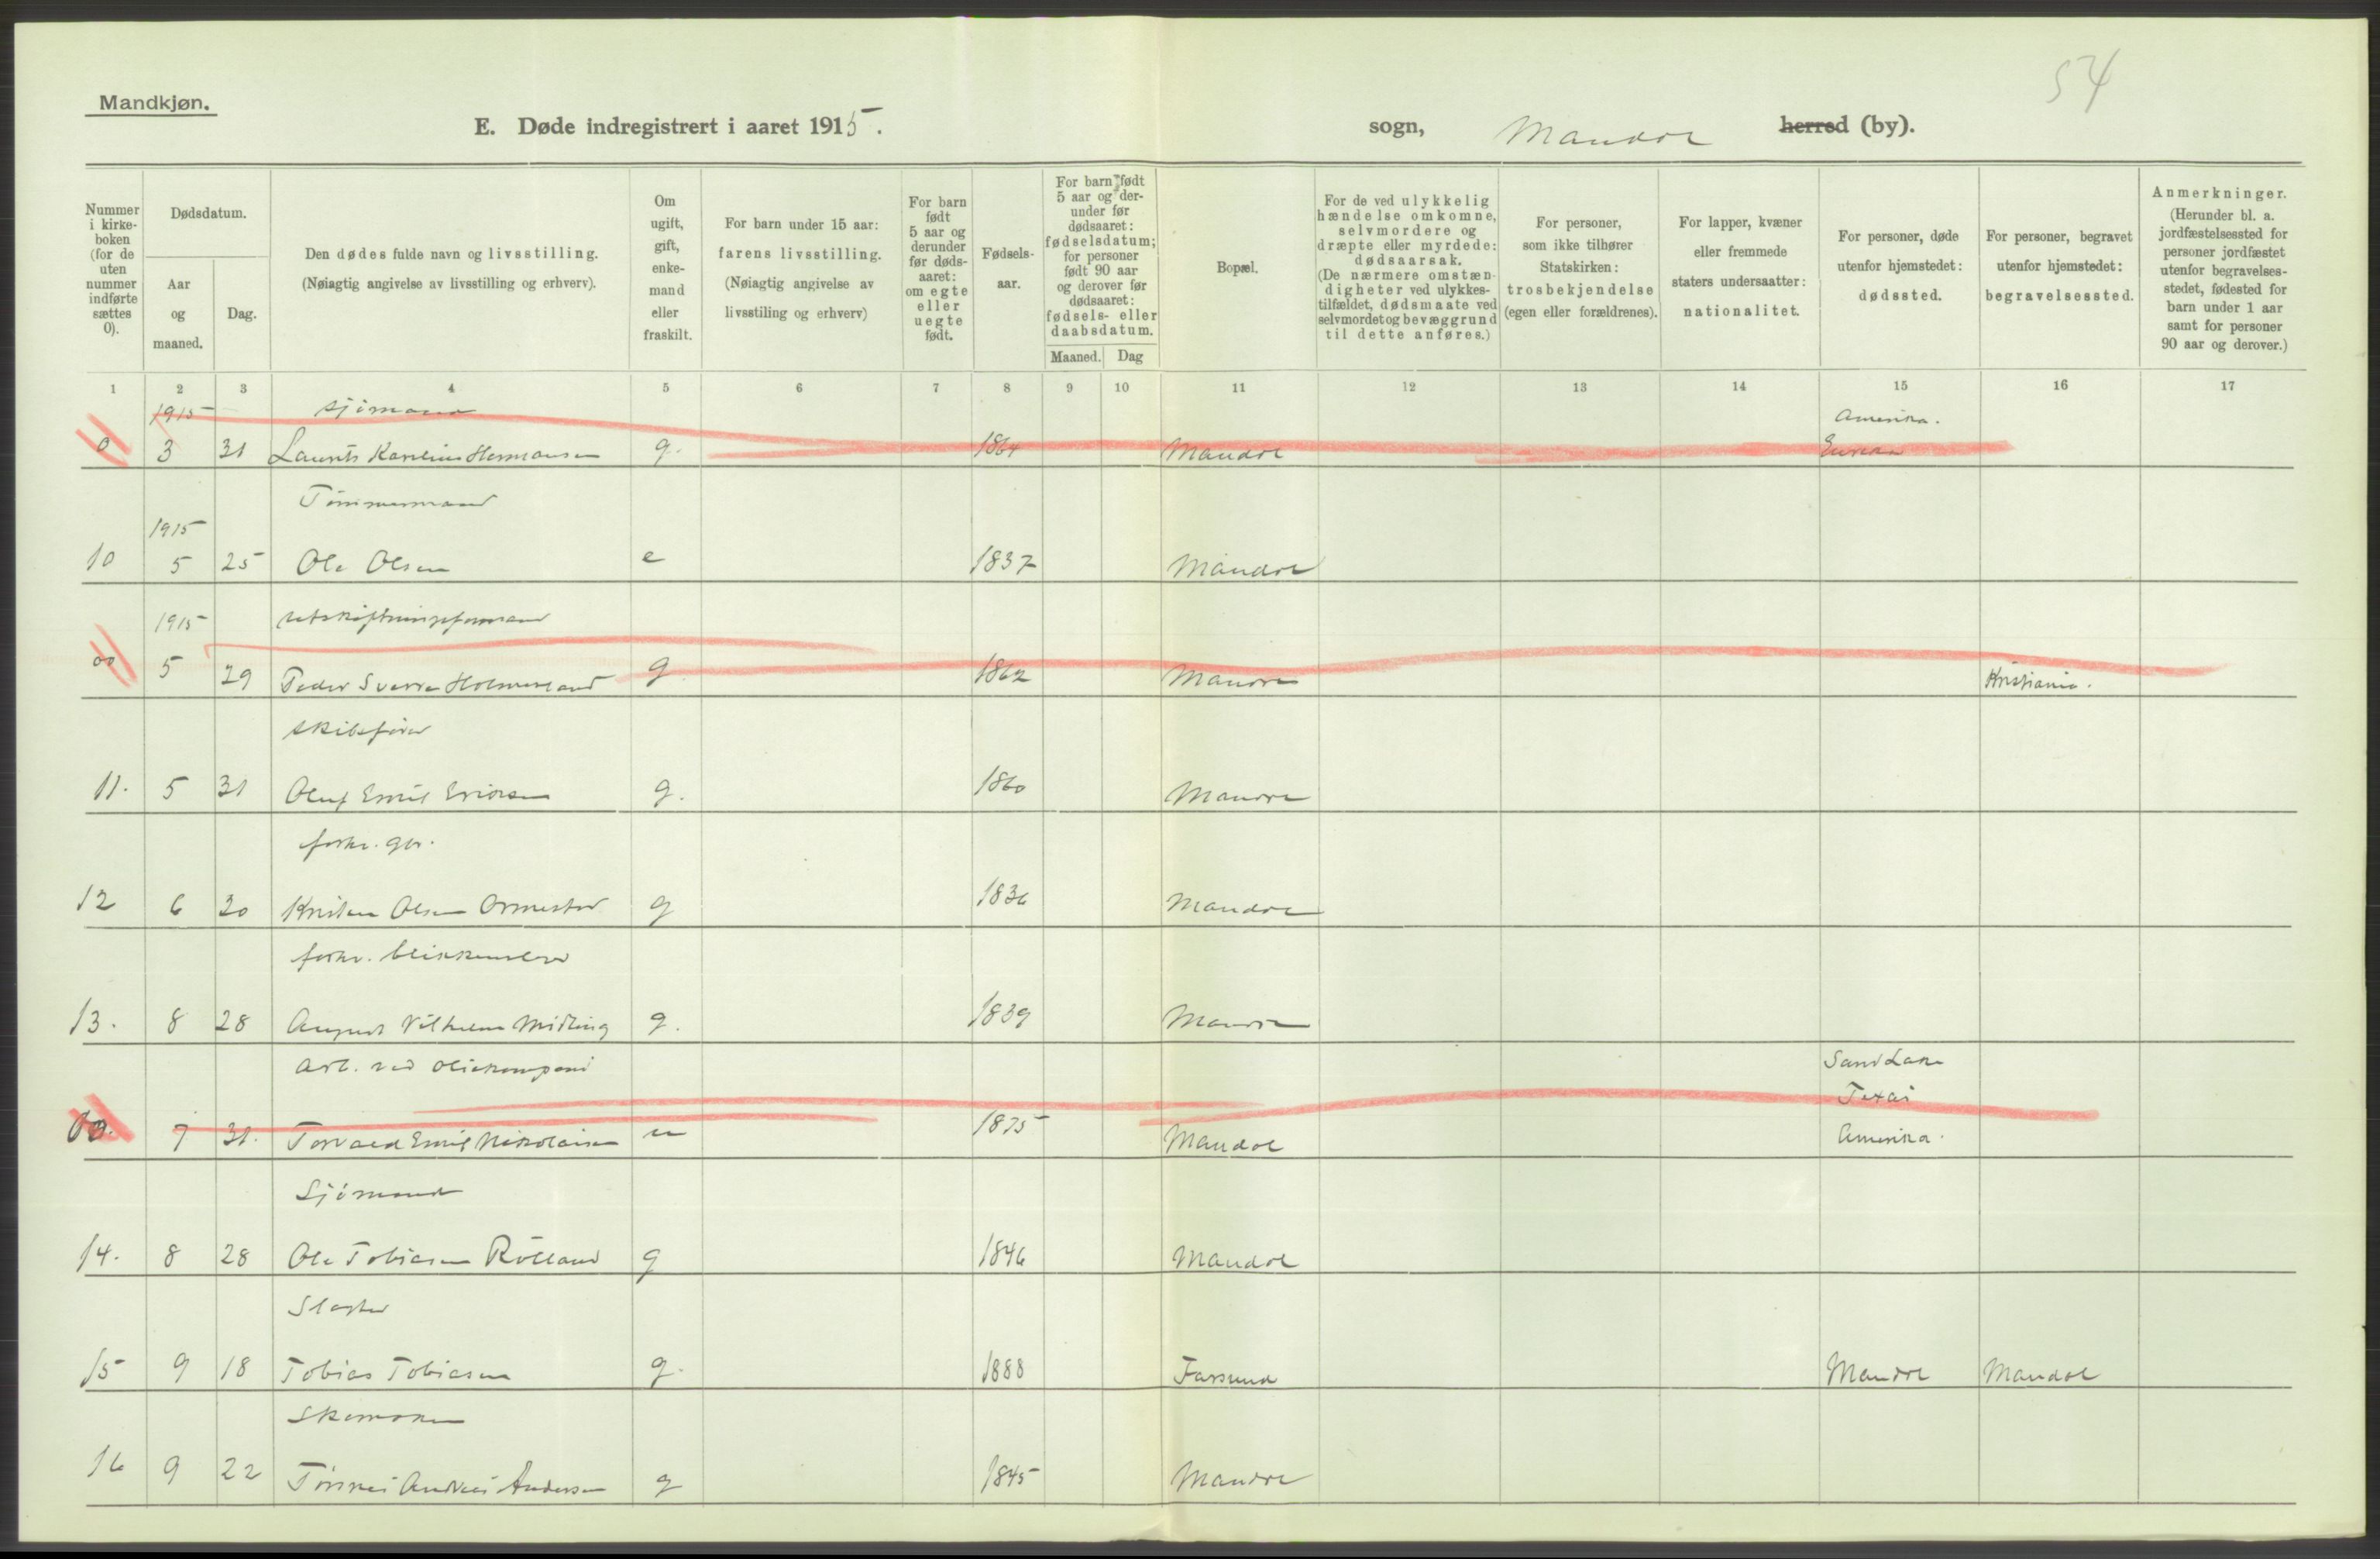 54
Mandkjøn.
E. Døde indregistrert i aaret 1915. sogn, Mandal herred (by).
Nummer i kirkeboken (for de uten nummer indførte sættes 0).
Dødsdatum.
Aar og maaned.
Dag.
Den dødes fulde navn og livsstilling.
(Nøiagtig angivelse av livsstilling og erhverv).
Om ugift, gift, enkemand eller fraskilt.
For barn under 15 aar: farens livsstilling.
(Nøiagtig angivelse av livsstiling og erhverv)
For barn født 5 aar og derunder før dødsaaret: om egte eller uegte født.
Fødselsaar.
For barn født 5 aar og derunder før dødsaaret: fødselsdatum; for personer født 90 aar og derover før dødsaaret: fødsels- eller daabsdatum.
Maaned. Dag
Bopæl.
For de ved ulykkelig hændelse omkomne, selvmordere og dræpte eller myrdede: dødsaarsak.
(De nærmere omstændigheter ved ulykkestilfældet, dødsmaate ved selvmordet og bevæggrund til dette anføres.)
For personer, som ikke tilhører Statskirken: trosbekjendelse (egen eller forældrenes).
For lapper, kvæner eller fremmede staters undersaatter: nationalitet.
For personer, døde utenfor hjemstedet: dødssted.
For personer, begravet utenfor hjemstedet: begravelsessted.
Anmerkninger.
(Herunder bl. a. jordfæstelsessted for personer jordfæstet utenfor begravelsesstedet, fødested for barn under 1 aar samt for personer 90 aar og derover.)
1 2 3 4 5 6 7 8 9 10 11 12 13 14 15 16 17
1915 Sjömand Amerika.
0 3 31 Laurits Karelius Hermansen g. 1864 Mandal Eureka
Tömmermand
1915
10 5 25 Ole Olsen e 1837 Mandal
1915 utskiftningsformand
00 5 29 Peder Sverre Holmesland g 1862 Mandal Kristiania.
Skibsförer
11. 5 31 Oluf Emil Eriksen g. 1860 Mandal
forhv. gbr.
12 6 20 Kristen Olsen Ormestad g 1836 Mandal
forhv. blikkenslager
13. 8 28 August Vilhelm Midling g. 1839 Mandal
Arb. ved oliekompani Sand Lake
Texas
00. 7 31. Torvald Emil Nikolaisen u 1875 Mandal Amerika.
Sjömand
14. 8 28 Ole Tobiasen Rölland g 1846 Mandal
Slagter
15 9 18 Tobias Tobiasen g. 1888 Farsund Mandal Mandal
Skomaker
16 9 22 Tönnes Andreas Andersen g 1845 Mandal